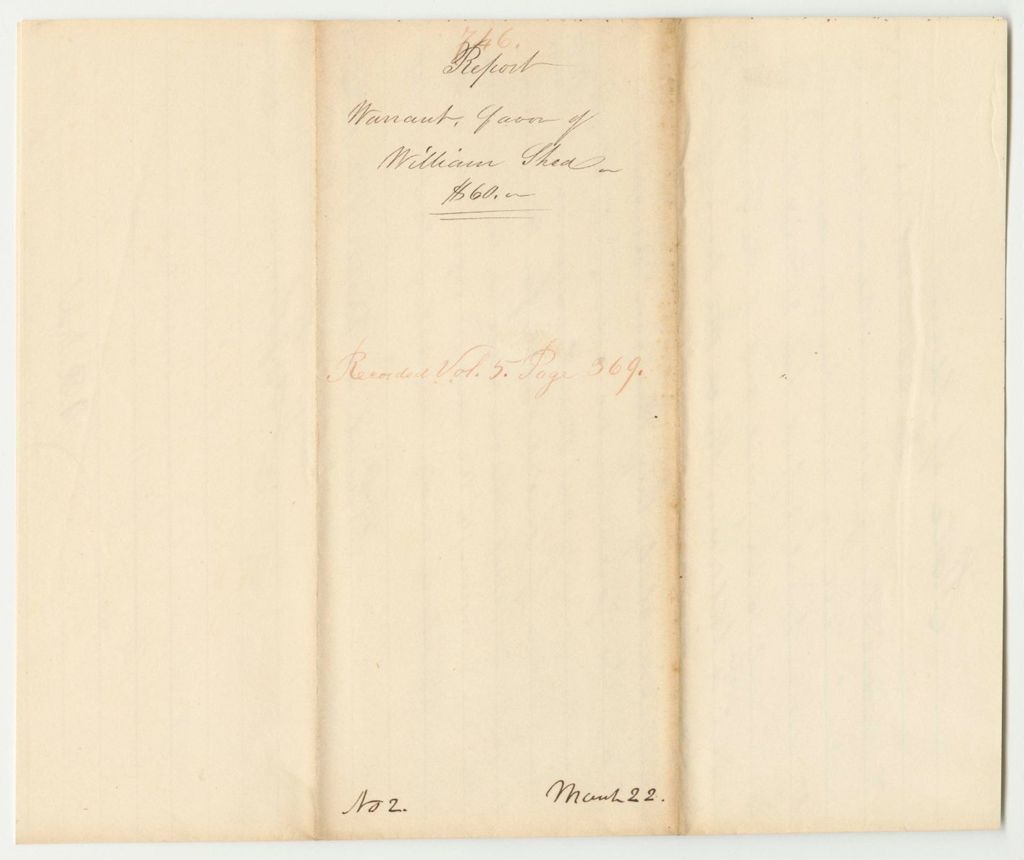 746.
Report
Warrant, favor of
William Shed
$60.
Recorded Vol. 5. Page 369.
No 2. March 22.